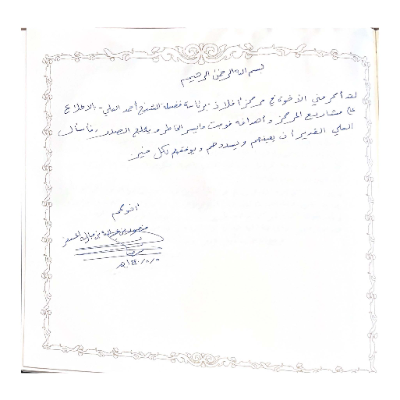 بسم الله الرحمن الرحيم
لقد أكرمني الأخوة في مركز برئاسة فضيلة الشيخ أحمد العلي بالاطلاع
على مشاريع المركز وأهدافه فوجدت ما يسر الخاطر ويثلج الصدر فأسأل
العلي القدير أن يعينهم ويسددهم ويوفقهم لكل خير
أخوكم